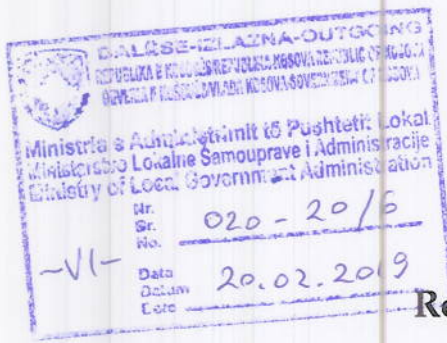 DALËSE-IZLAZNA-OUTGOING
REPUBLIKA E KOSOVËS-REPUBLIKA KOSOVA-REPUBLIC OF KOSOVA
QEVERIA E KOSOVËS-VLADA KOSOVA-GOVERNMENT OF KOSOVA
Ministria e Administrimit të Pushtetit Lokal
Ministarstvo Lokalne Samouprave i Administracije
Ministry of Local Government Administration
Nr.
Sr.
No.
020-20/6
-VI-
Data
Datum
Date
20.02.2019
Re